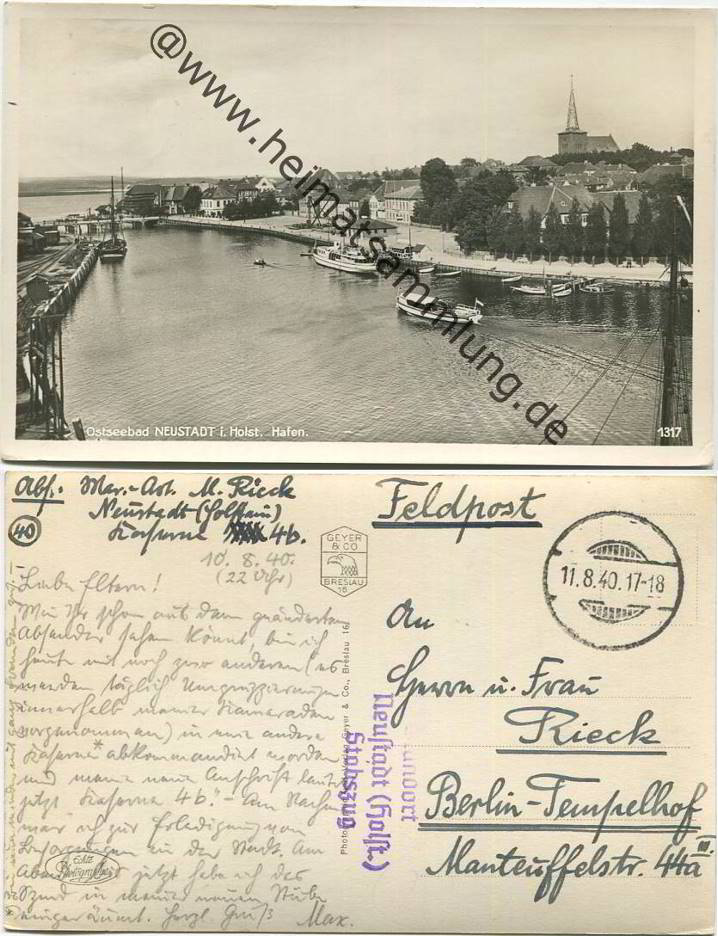 @www.heimatsammlung.de
Ostseebad NEUSTADT i. Holst. Hafen.
1317
Abs.: Mar.-Art. M. Rieck
Neustadt (Holstein)
Kaserne 4b.
40
10. 8. 40.
(22 Uhr)
Liebe Eltern!
Wie Ihr schon aus dem geänderten
Absender sehen könnt, bin ich
heute mit noch zwei anderen (es
werden täglich Umgruppierungen
innerhalb meiner Kameraden
vorgenommen) in eine andere
Kaserne* abkommandiert worden
und meine neue Anschrift lautet
jetzt "Kaserne 4b." - Am Nachm.
war ich zur Erledigung von
Besorgungen in der Stadt. Am
Abend jetzt habe ich das
Spind in meiner neuen Stube
eingeräumt. Herzl. Gruß Max.
GEYER
& CO
BRESLAU
16
Geyer & Co., Breslau 16
Echte
Photographie
Feldpost
11.8.40.17-18
An
Herrn u. Frau
Rieck
Berlin-Tempelhof
Manteuffelstr. 44a III.
Standort
Neustadt (Holst.)
Stabszug